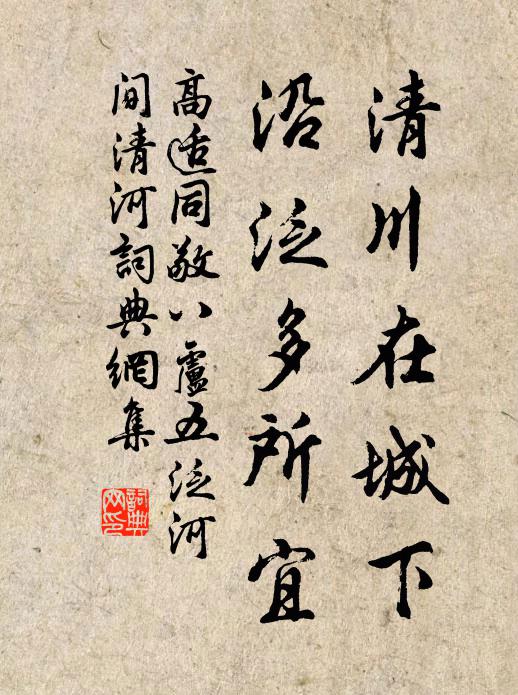 清川在城下
沿泛多所宜
高适同敬八盧五泛河
间清河詞典網集
詞典网印